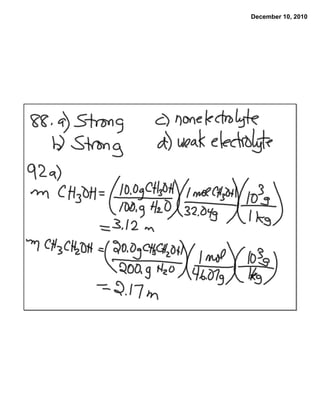 December 10, 2010
88. a) Strong c) nonelectrolyte
b) Strong d) weak electrolyte
92a)
m CH3OH = (10.0g CH3OH / 100.g H2O)(1 mol CH3OH / 32.04g)(10^3 g / 1 kg)
= 3.12 m
m CH3CH2OH = (20.0g CH3CH2OH / 200.g H2O)(1 mol / 46.07g)(10^3 g / 1kg)
= 2.17 m